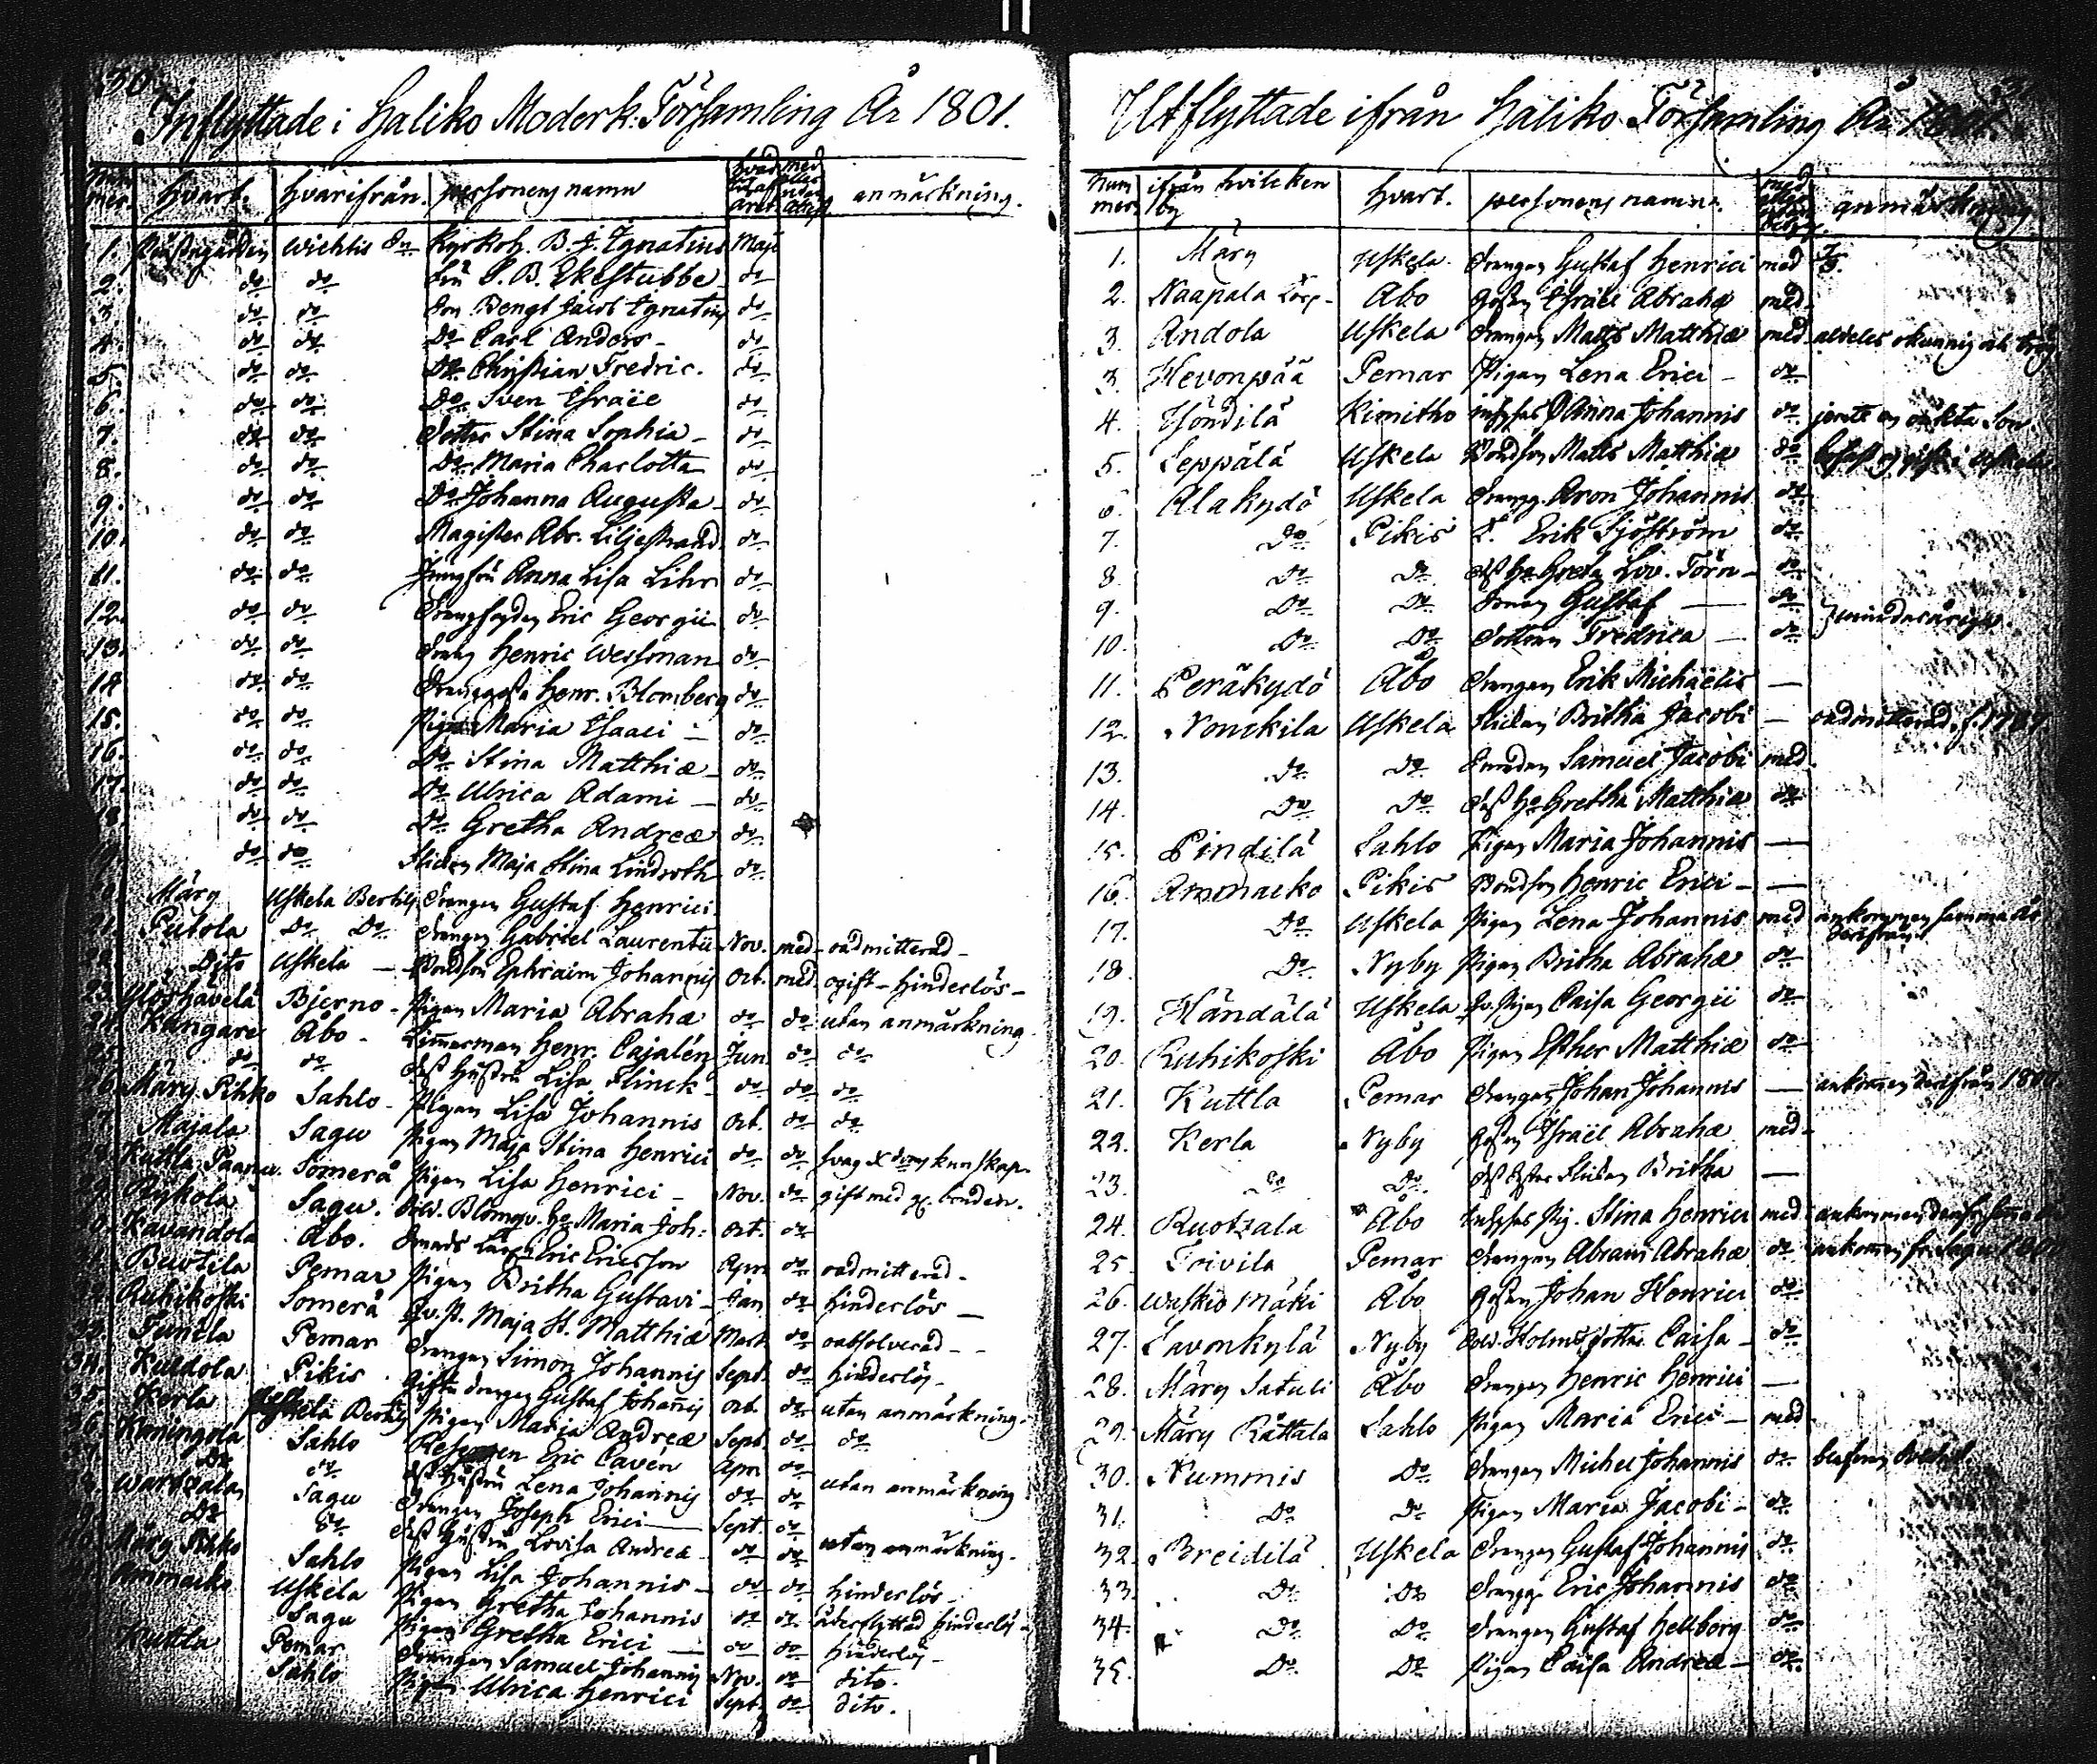 30.
Inflyttade i Haliko Moderk: Församling År 1801.
Num mer. Hvart. Hvarifrån. personens namn anmärkning.
1. Wichtis Kyrkoh. B. J. Ignatius Maji
2. do do Fru S. B. Ekestubbe do
3. do do Son Bengt Jacob Ignatius do
4. do do Do Carl Anders do
5. do do Do Christian Fredric. do
6. do do Do Sven Israel do
7. do do Dotter Stina Sophia do
8. do do Do Maria Charlotta do
9. do do Do Johanna Augusta do
10. do do Magister Abr. Liljestrand do
11. do do Jungfru Anna Lisa Lihr do
12. do do Eric Georgii do
13. do do Henric Wessman do
14 do do Henr. Blomberg do
15. do do Pigan Maria Isaaci do
16. do do Do Stina Matthiæ do
17. do do Do Ulrica Adami do
18 do do Do Gretha Andreæ do
19. do do Flickan Maja Stina Lindroth do
Märy Uskela Bertils Drengen Gustaf Henrici
21. Putola Do Do Drengen Gabriel Laurentii Nov. med oadmitterad
22. Dito Uskela Bondson Ephraim Johannis Oct. med ogift hinderlös
23. Bjerno Pigan Maria Abrahæ do do utan anmärkning
24. Kangare Åbo Timmerman Henr. Cajalén Jun. do do
25. do do Dess Hustru Lisa Flinck do do do
26. Märy Pihko Sahlo Pigan Lisa Johannis Oct. do do
27. Majala Sagu Pigan Maja Stina Henrici do do
28. Kuttla Somerå Pigan Lisa Henrici Nov. do gift med
29. Rykola Sagu. Sold. Blomqv. Ho Maria Joh: Oct. do
30. Kavandola Åbo. Eric Ericsson Apr. do oadmitterad
Pemar Pigan Britha Gustavi Jan do hinderlös
Ruhikoski Somerå Qv. P. Maja St. Matthiæ Mart. do oabsolverad
Pemar Drengen Simon Johannis Sept. do hinderlös
34. Pikis Gifta drengen Gustaf Johannis Oct. do utan anmärkning
35. Kerla Bertils Pigan Maria Andreæ Sept. do do
36. Kuningola Sahlo Eric Cavén Apr. do
37. Do do Dess Hustru Lena Johannis do do utan anmärkning
Sagu Drengen Joseph Erici Sept. do
Do do Dess Hustru Lovisa Andreæ do do utan anmärkning
Märy Pihko Sahlo Pigan Lisa Johannis do do hinderlös
Ammaiko Uskela Pigan Gretha Johannis do do återflyttad hinderlös
Sagu Pigan Gretha Erici do do hinderlös
Kuttla Pemar Drengen Samuel Johannis Nov. do dito.
Sahlo Pigan Ulrica Henrici Sept. do dito.
Utflyttade ifrån Haliko Församling År
Num mer. ifrån hvilcken by hvart. personens namn. anmärkning
1. Märy Uskela Drengen Gustaf Henrici med
2. Naapala Torp Åbo Gossen Israel Abrahæ med
3. Andola Uskela Drengen Matts Matthiæ med
3. Hevonpää Pemar Pigan Lena Erici do
4. Höndilä Kimitho Anna Johannis do jemte en oäkta Son
5. Leppälä Uskela Bondson Matts Matthiæ do
6. Alakydö Uskela Aron Johannis do
7. Do Pikis Erik Sjöström do
8. Do Do Dess Ho Greta Lov. Törn do
9. Do Do Sonen Gustaf do
10. Do Do Dottren Fredrica do minderåriga
11. Peräkydö Åbo Drengen Erik Michaëlis
12. Nonckila Uskela Flickan Britha Jacobi oadmitterad
13. Do Do Samuel Jacobi med
14. Do Do Dess Ho Gretha Matthiæ do
15. Pindilä Sahlo Pigan Maria Johannis
16. Ammaiko Pikis Bondson Henric Erici
17. Do Uskela Pigan Lena Johannis med ankommen samma år
18. Do Nyby Pigan Britha Abrahæ do
19. Händälä Uskela Caisa Georgii do
20. Ruhikoski Åbo Pigan Esther Matthiæ do
21. Kuttla Pemar Drengen Johan Johannis ankommen derifrån
22. Kerla Nyby Gossen Israel Abrahæ med
23. Do Do Flickan Britha
24. Ruotzala Åbo Stina Henrici med
25 Toivila Pemar Drengen Abram Abrahæ do
26. Waskio Mäki Åbo Gossen Johan Henrici do
27. Savonkylä Nyby Sold. Holms dotter Caisa do
28. Märy Satuli Åbo Drengen Henric Henrici
29. Märy Rättala Sahlo Pigan Maria Erici med
30. Nummis Do Drengen Michel Johannis do
31. Do Do Pigan Maria Jacobi do
32. Breidilä Uskela Drengen Gustaf Johannis do
33. Do Do Eric Johannis do
34. Do Do Drengen Gustaf Hellborg do
35. Do Do Pigan Caisa Andreæ do